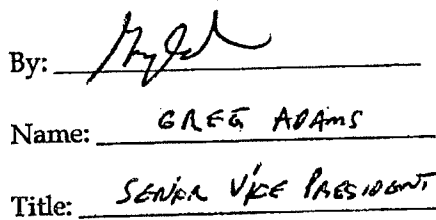 By:
Name: GREG ADAMS
Title: SENIOR VICE PRESIDENT